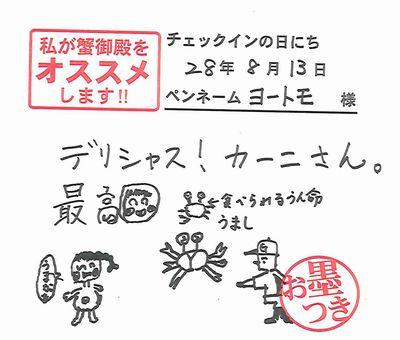 私が蟹御殿を
オススメ
します!!
チェックインの日にち
28年8月13日
ペンネーム ヨートモ 様
デリシャス! カーニさん。
最高
←食べられるうん命
うまし
うまし
G
お墨
つき